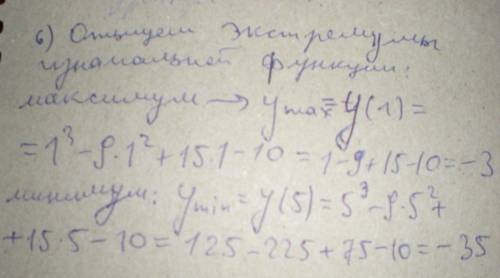 6) Отыщем экстремумы
изначальной функции:
максимум → y max = y(1) =
= 1³ - 9·1² + 15·1 - 10 = 1 - 9 + 15 - 10 = -3
минимум: y min = y(5) = 5³ - 9·5² +
+ 15·5 - 10 = 125 - 225 + 75 - 10 = -35